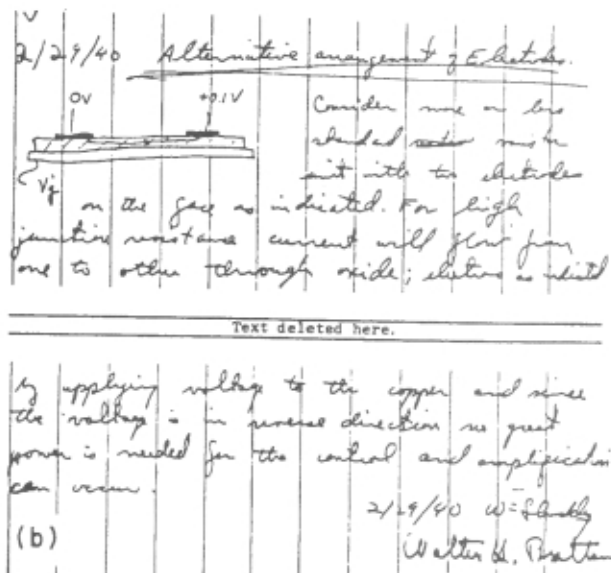 2/29/40 Alternative arrangement of Electrodes.
0V +0.1V
Consider more or less
standard
unit with two electrodes
Vj
on the face as indicated. For high
junction resistance current will flow from
one to other through oxide; electrons as indicated
Text deleted here.
By applying voltage to the copper and since
the voltage is in reverse direction no great
power is needed for the control and amplification
can occur.
2/29/40 W Shockley
(b)
Walter H. Brattain